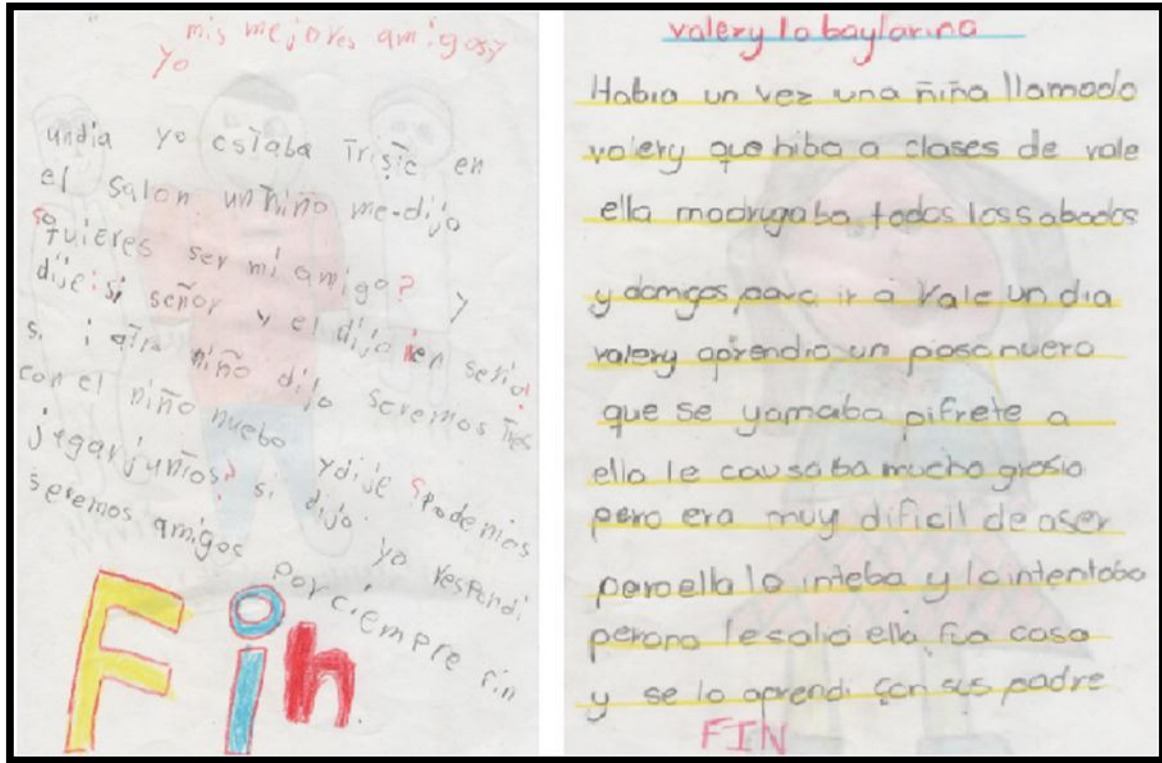 mis mejores amigos y
yo
un dia yo estaba triste en
el salon un niño me-dijo
¿quieres ser mi amigo? y
dije: si señor y el dijo ¡en serio!
si i otro niño dijo seremos tres
con el niño nuebo y dije ¿Podemos
jegar juntos? si dijo yo respondi
seremos amigos por ciempre fin
Fin
valery la baylarina
Habia un vez una niña llamada
valery que hiba a clases de vale
ella madrugaba todos los sabados
y domigos para ir a vale un dia
valery aprendio un paso nuevo
que se yamaba pifrete a
ella le causaba mucha grasia
pero era muy dificil de aser
pero ella lo inteba y lo intentaba
pero no le salio ella fua casa
y se lo aprendi con sus padre
FIN